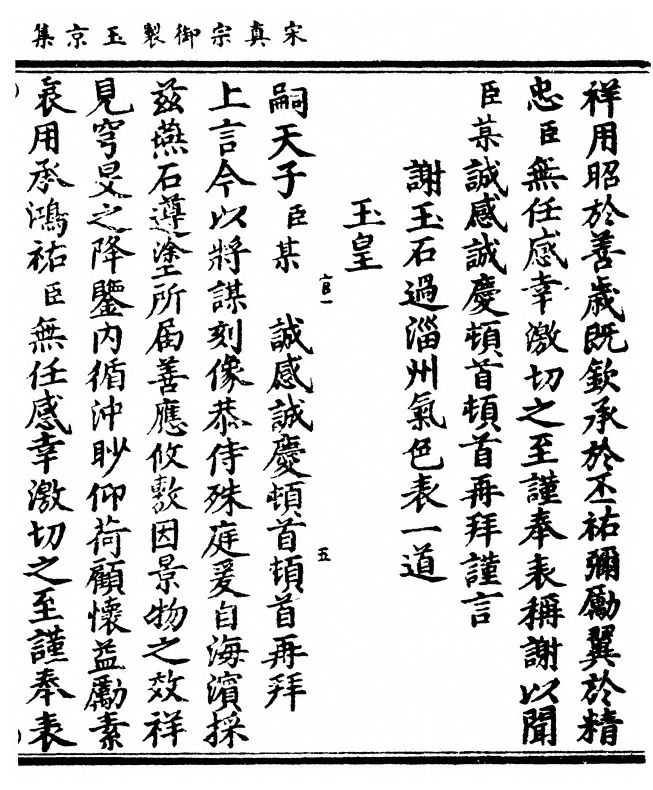 宋真宗御製玉京集
祥用昭於善歲既欽承於丕祐彌勵翼於精
忠臣無任感幸激切之至謹奉表稱謝以聞
臣某誠感誠慶頓首頓首再拜謹言
謝玉石過淄州氣色表一道
玉皇
嗣天子臣某誠感誠慶頓首頓首再拜
上言今以將謀刻像恭侍殊庭爰自海濱採
茲燕石遵塗所屆善應攸敷因景物之效祥
見穹旻之降鑒內循沖眇仰荷顧懷益勵素
衷用承鴻祐臣無任感幸激切之至謹奉表
五